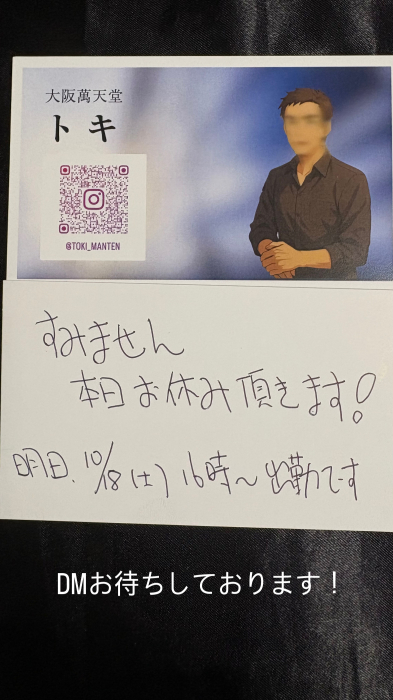 大阪萬天堂
トキ
@TOKI_MANTEN
すみません
本日お休み頂きます!
明日、10/18(土)16時〜出勤です
DMお待ちしております！